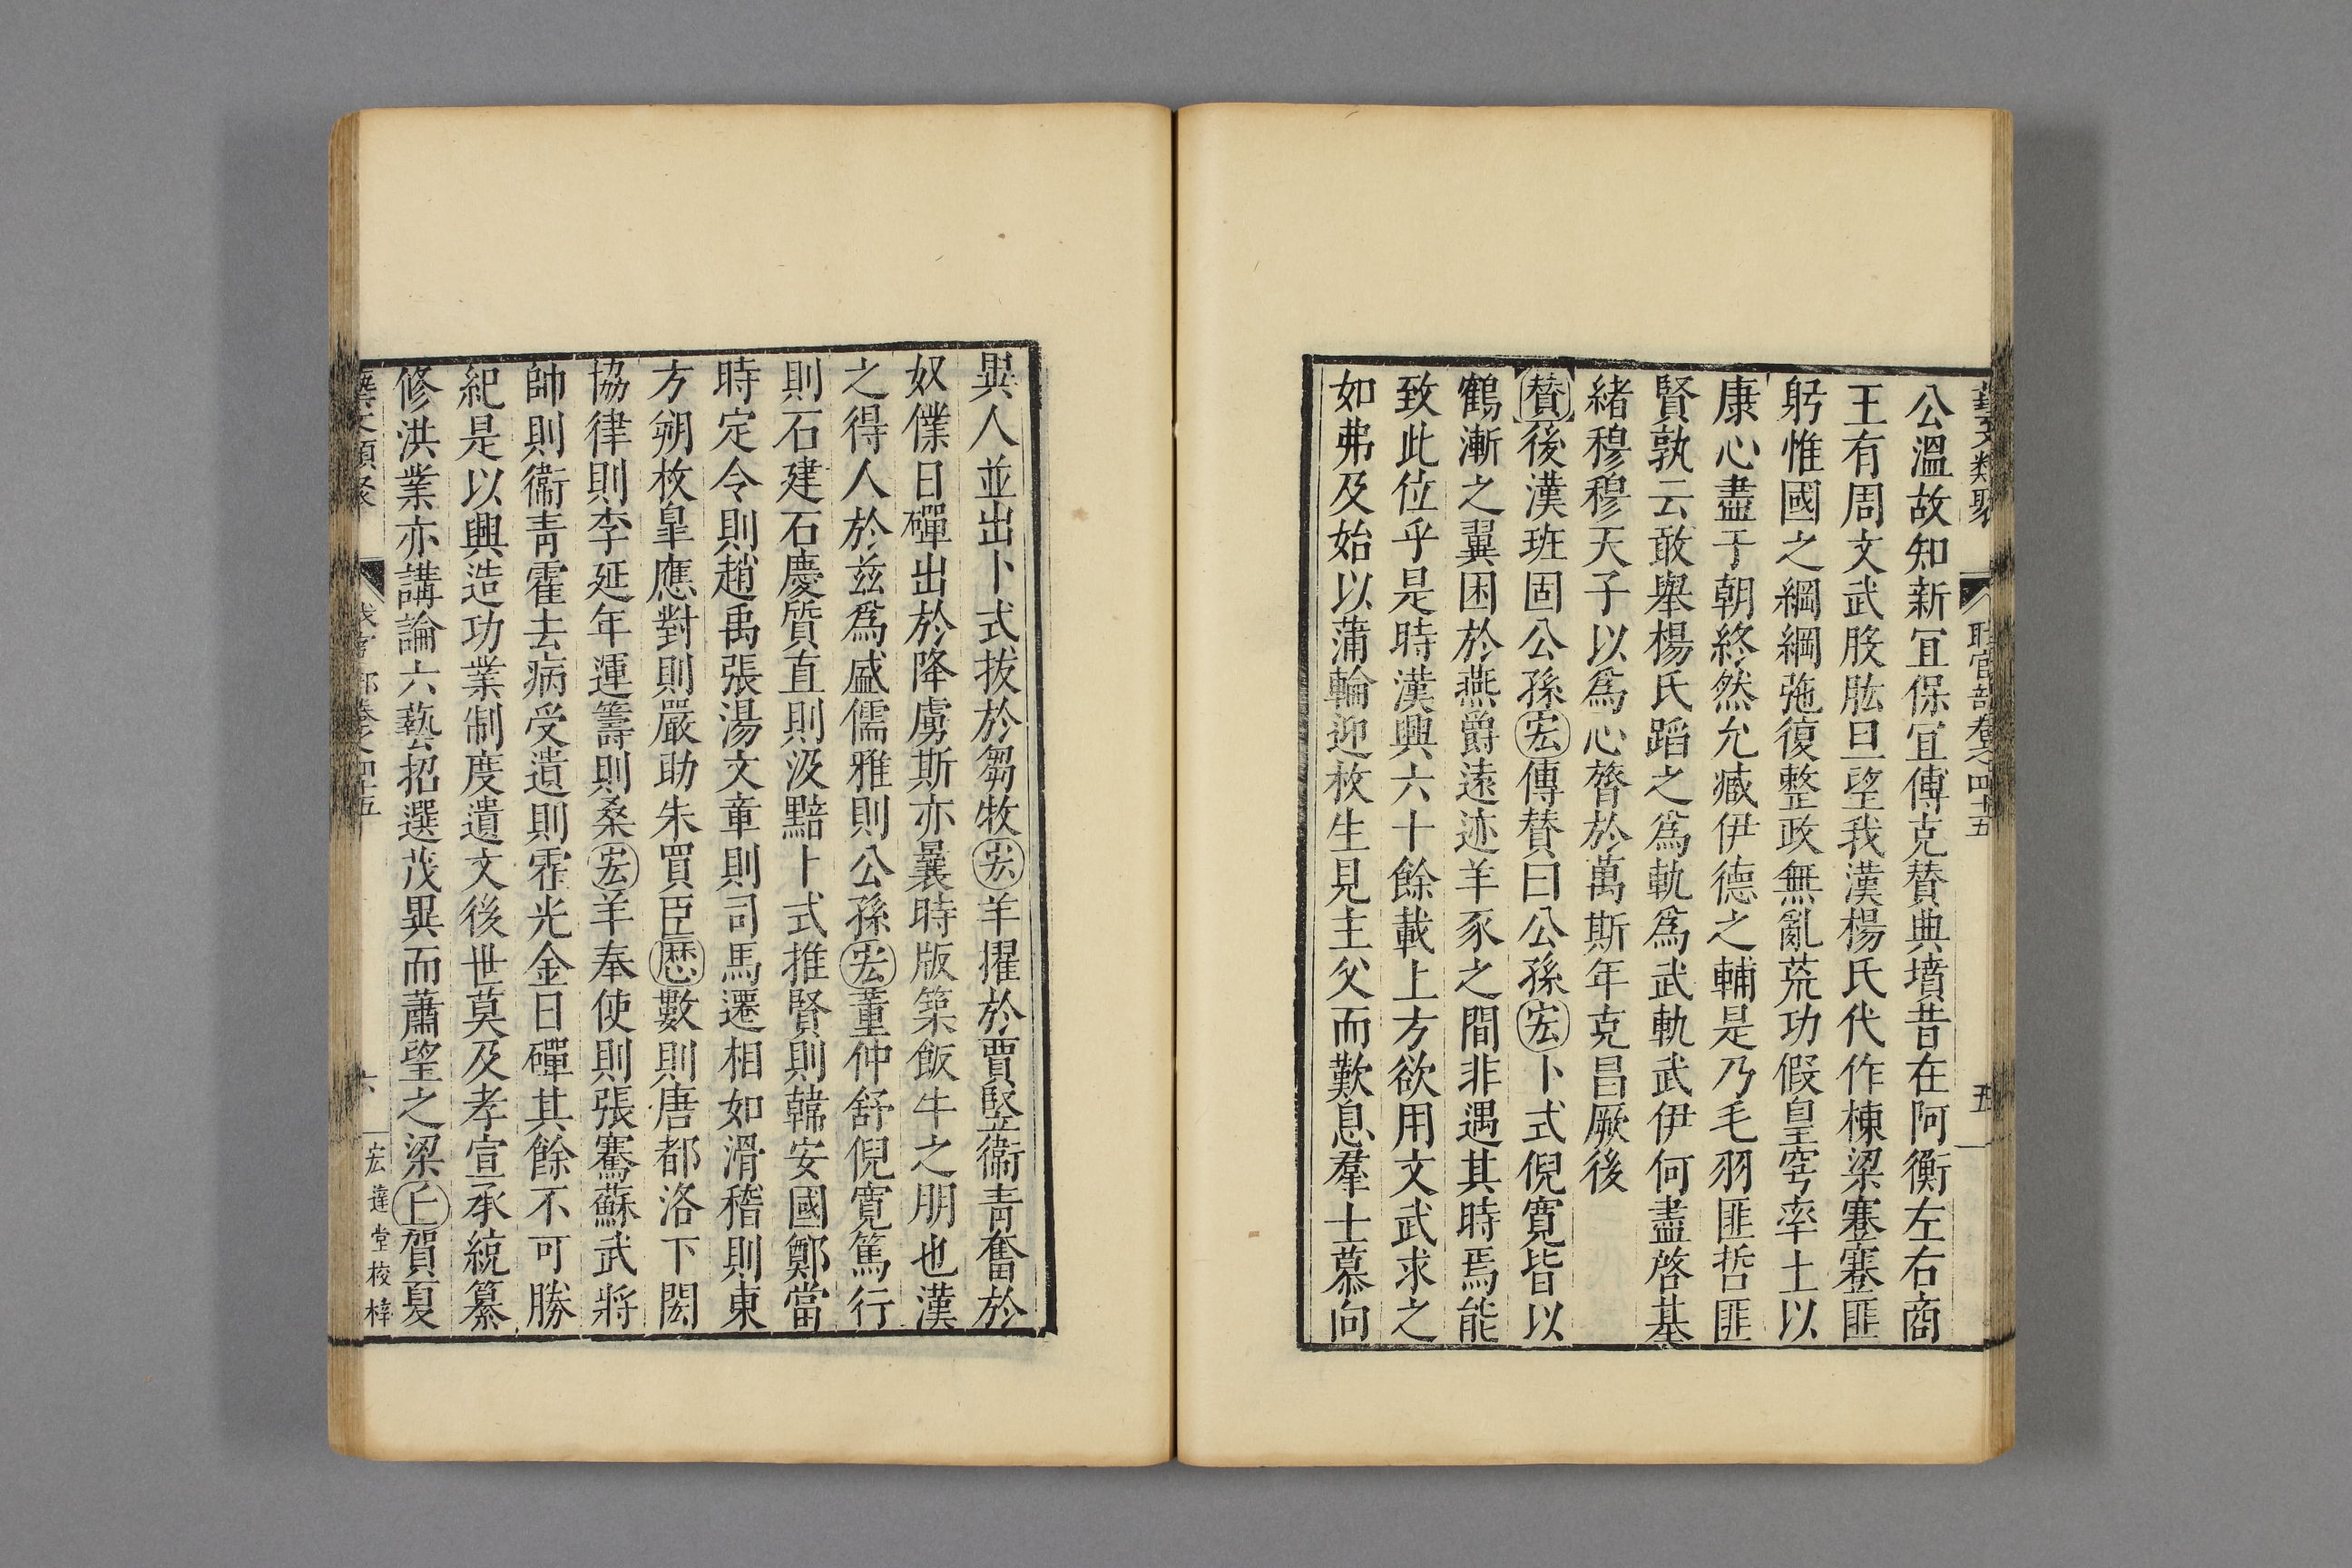 藝文類聚 職官部卷之四十五 五
公溫故知新宜保宜傅克賛典墳昔在阿衡左右商
王有周文武股肱旦望我漢楊氏代作棟梁蹇蹇匪
躬惟國之綱綱弛復整政無亂荒功假皇穹率土以
康心盡于朝終然允臧伊德之輔是乃毛羽匪哲匪
賢孰云敢舉楊氏蹈之爲軌爲武軌武伊何盡啓基
緒穆穆天子以爲心膂於萬斯年克昌厥後
賛後漢班固公孫宏傳賛曰公孫宏卜式倪寬皆以
鶴漸之翼困於燕爵遠迹羊豕之間非遇其時焉能
致此位乎是時漢興六十餘載上方欲用文武求之
如弗及始以蒲輪迎枚生見主父而歎息羣士慕向
異人並出卜式拔於芻牧宏羊擢於賈竪衞靑奮於
奴僕日磾出於降虜斯亦曩時版築飯牛之朋也漢
之得人於兹爲盛儒雅則公孫宏董仲舒倪寬篤行
則石建石慶質直則汲黯卜式推賢則韓安國鄭當
時定令則趙禹張湯文章則司馬遷相如滑稽則東
方朔枚皐應對則嚴助朱買臣厯數則唐都洛下閎
協律則李延年運籌則桑宏羊奉使則張騫蘇武將
帥則衞靑霍去病受遺則霍光金日磾其餘不可勝
紀是以興造功業制度遺文後世莫及孝宣承統纂
修洪業亦講論六藝招選茂異而蕭望之梁上賀夏
藝文類聚 職官部卷之四十五 六 宏達堂校梓